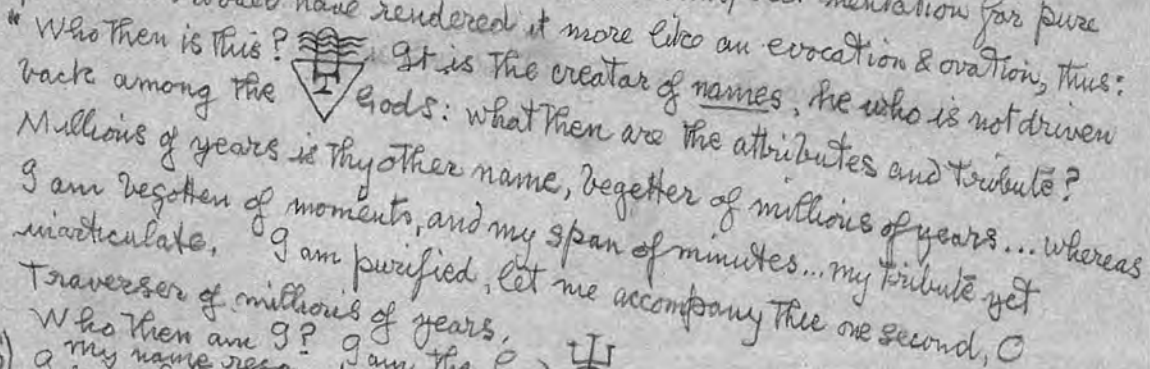 have rendered it more like an evocation & ovation, thus:
"Who then is this? It is the creator of names, he who is not driven
back among the Gods: what then are the attributes and tribute?
Millions of years is thy other name, begetter of millions of years... whereas
I am begotten of moments, and my span of minutes... my tribute yet
inarticulate. I am purified, let me accompany thee one second, O
Traverser of millions of years.
Who then am I? I am the
my name